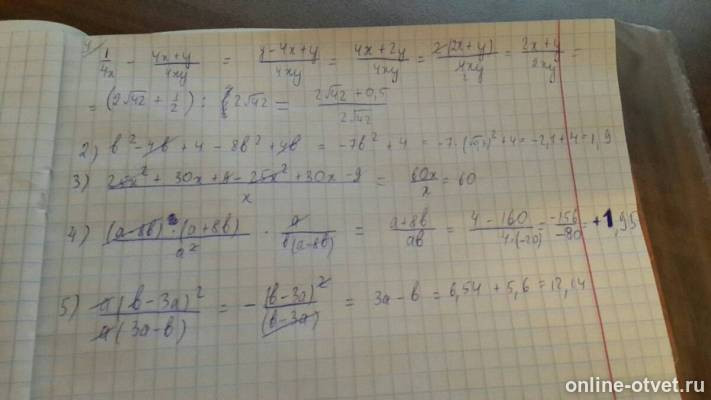 1) 1/4x - 4x+y/4xy = y-4x+y/4xy = 4x+2y/4xy = 2(2x+y)/4xy = 2x+y/2xy =
= (2√42 + 1/2) : 2√42 = 2√42 + 0,5/2√42
2) в² - 4в + 4 - 8в² + 4в = -7в² + 4 = -7·()² + 4 = -2,1+4 = 1,9
3) 25x² + 30x + 9 - 25x² + 30x - 9/x = 60x/x = 60
4) (a-8в)·(a+8в)/a² · a/в(a-8в) = a+8в/aв = 4-160/4·(-20) = -156/-80 = +1,95
5) a(в-3a)²/a(3a-в) = -(в-3a)²/(в-3a) = 3a-в = 6,54 + 5,6 = 12,14
online-otvet.ru